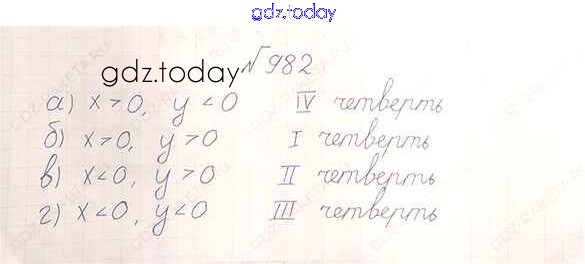 gdz.today
gdz.today №982
а) x > 0, y < 0 IV четверть
б) x > 0, y > 0 I четверть
в) x < 0, y > 0 II четверть
г) x < 0, y < 0 III четверть